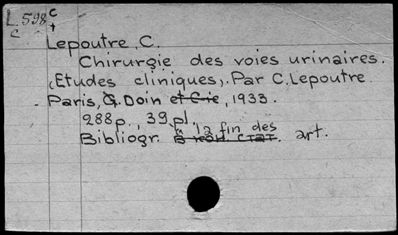 L 598 c
c +
Lepoutre, C.
Chirurgie des voies urinaires.
(Etudes cliniques). Par C. Lepoutre
Paris, G. Doin et Cie, 1933.
288p., 39 pl.
à la fin des
Bibliogr. art.